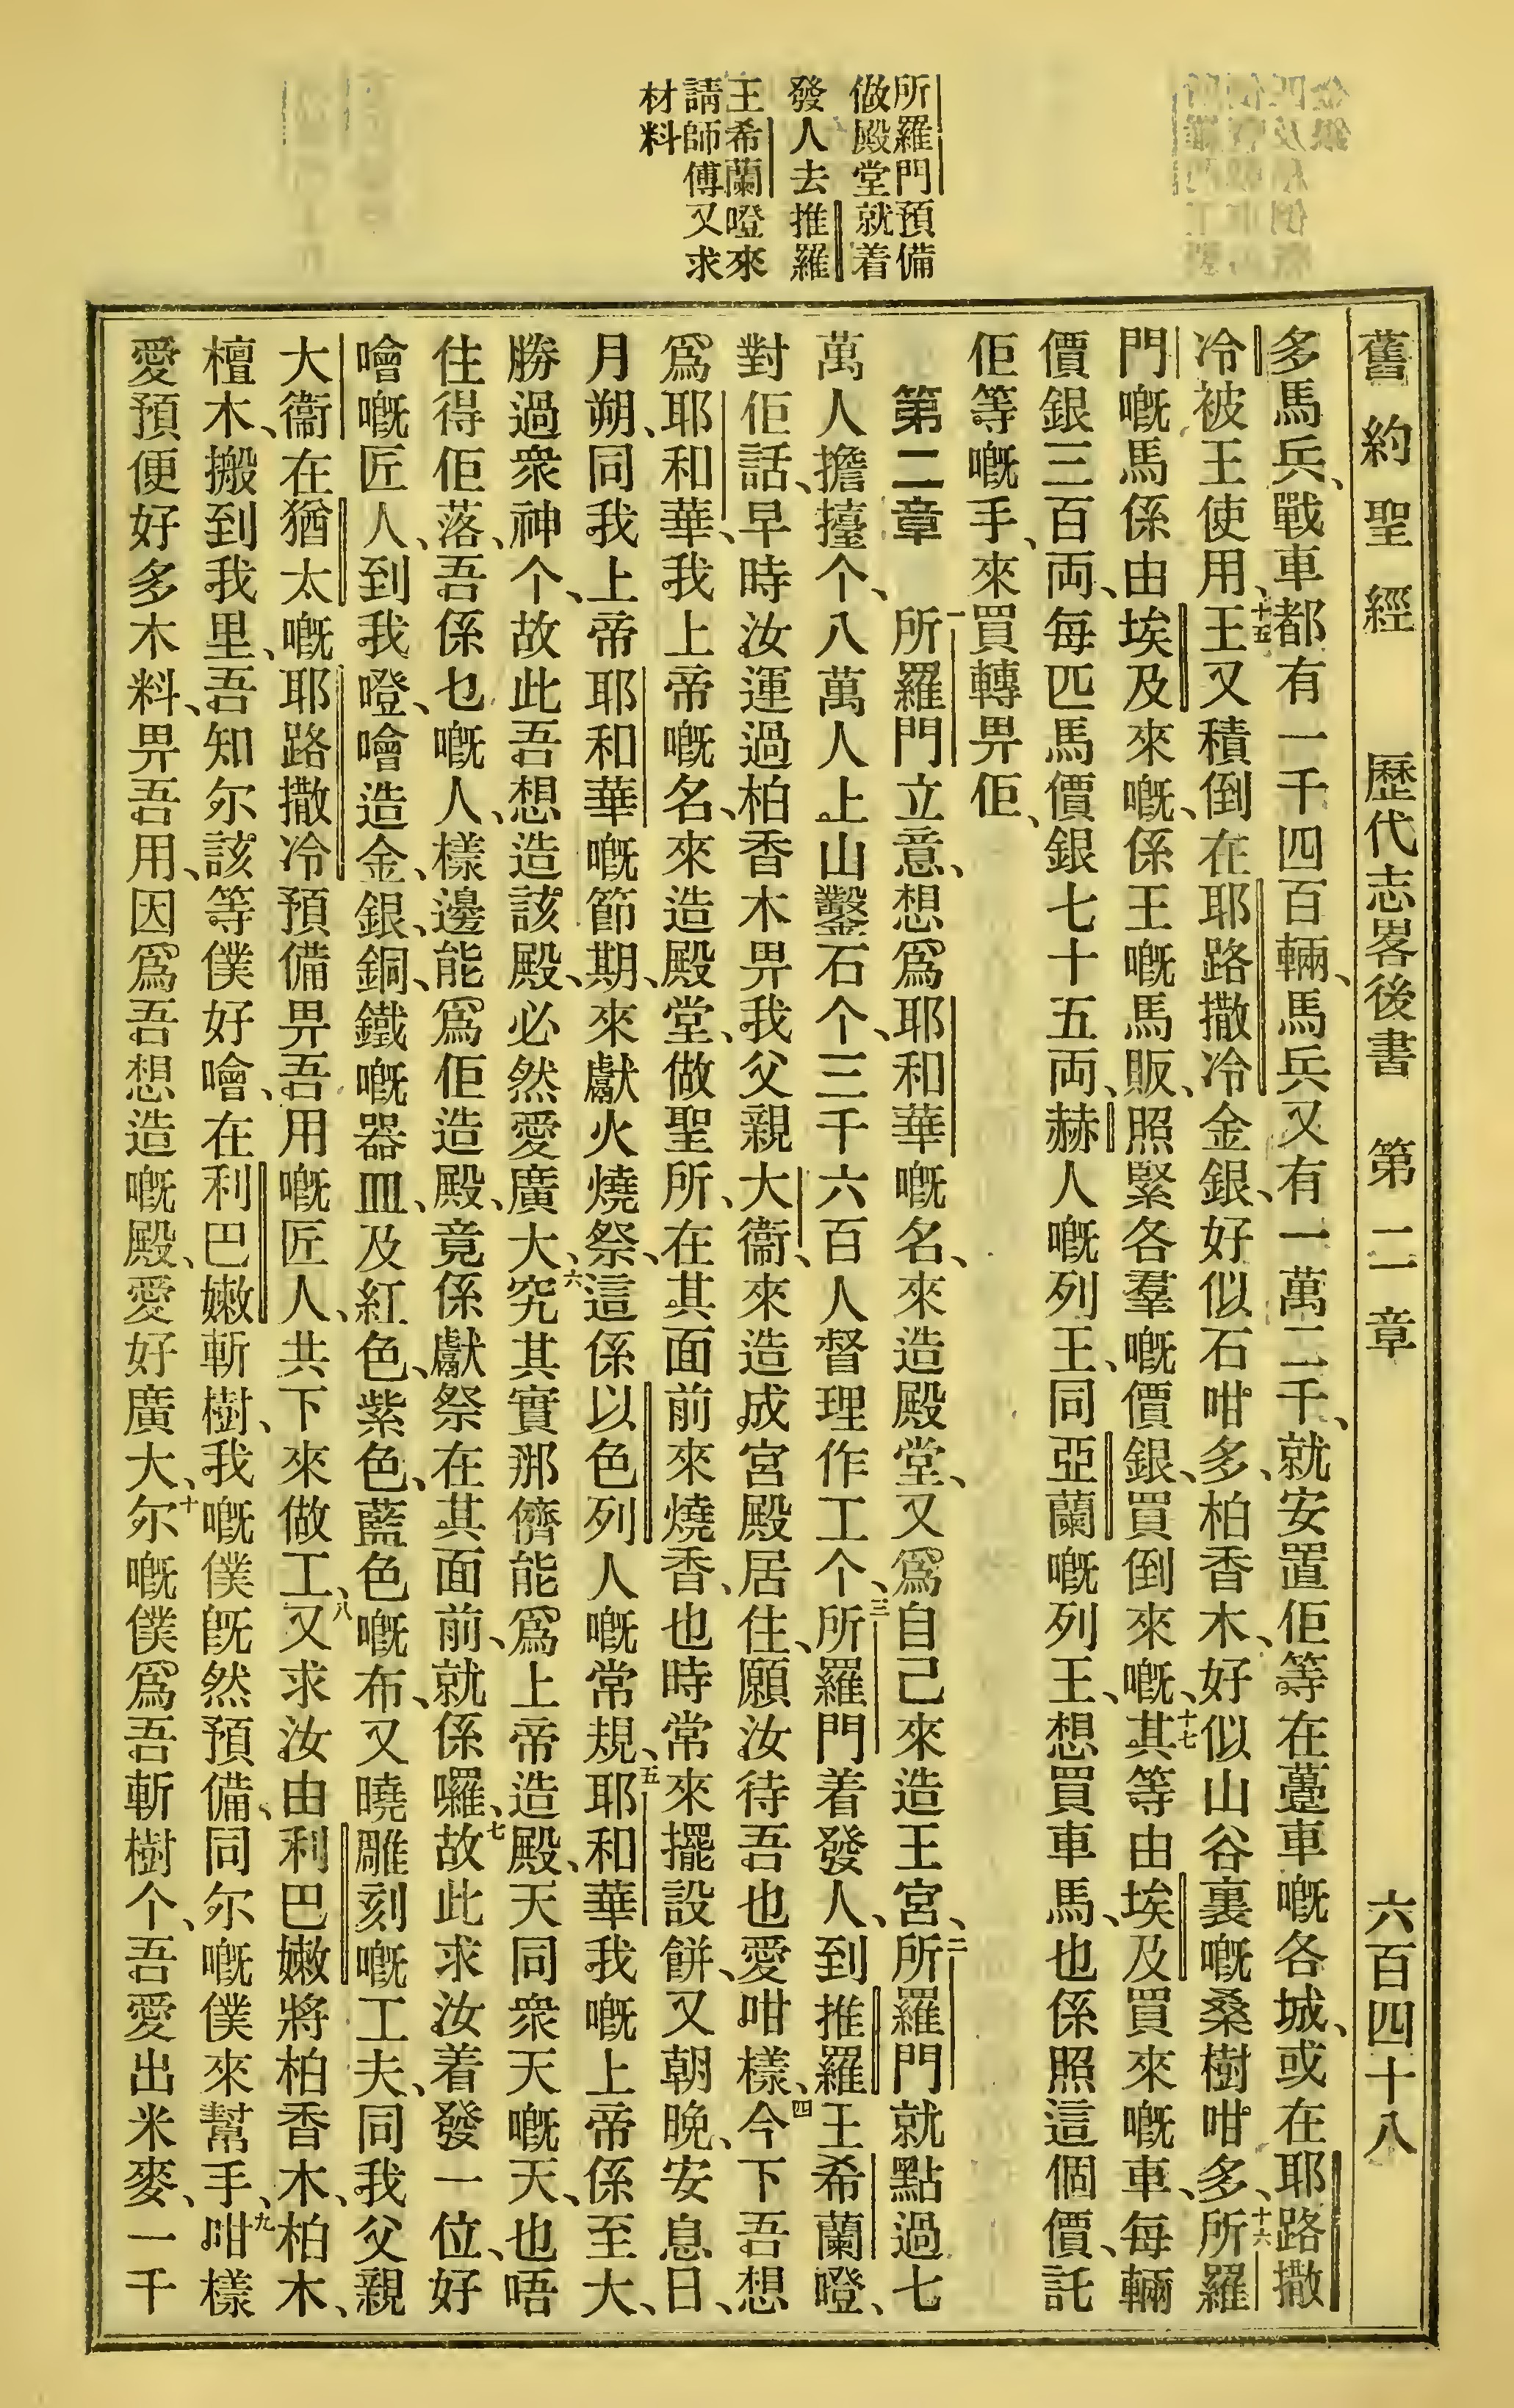 所羅門預備
做殿堂就着
發人去推羅
王希蘭嶝來
請師傅又求
材料
舊約聖經 歷代志畧後書 第二章 六百四十八
多馬兵、戰車都有一千四百輛、馬兵又有一萬二千、就安置佢等在躉車嘅各城、或在耶路撒
冷被王使用、十五王又積倒在耶路撒冷金銀、好似石咁多、柏香木、好似山谷裏嘅桑樹咁多、十六所羅
門嘅馬係由埃及來嘅、係王嘅馬販、照緊各羣嘅價銀、買倒來嘅、十七其等由埃及買來嘅車、每輛
價銀三百両、每匹馬價銀七十五両、赫人嘅列王、同亞蘭嘅列王、想買車馬、也係照這個價、託
佢等嘅手、來買轉畀佢、
第二章 一所羅門立意、想爲耶和華嘅名、來造殿堂、又爲自己來造王宮、二所羅門就點過七
萬人擔擡个、八萬人上山鑿石个、三千六百人督理作工个、三所羅門着發人、到推羅王希蘭嶝、
對佢話、早時汝運過柏香木畀我父親大衞、來造成宮殿居住、願汝待吾也愛咁樣、四今下吾想
爲耶和華、我上帝嘅名、來造殿堂、做聖所、在其面前來燒香、也時常來擺設餅、又朝晚、安息日、
月朔、同我上帝耶和華嘅節期、來獻火燒祭、這係以色列人嘅常規、五耶和華我嘅上帝係至大、
勝過衆神个、故此吾想造該殿、必然愛廣大、六究其實那儕能爲上帝造殿、天同衆天嘅天、也唔
住得佢落、吾係乜嘅人、樣邊能爲佢造殿、竟係獻祭在其面前、就係囉、七故此求汝着發一位、好
噲嘅匠人、到我嶝、噲造金、銀、銅、鐵嘅器皿、及紅色、紫色、藍色嘅布、又曉雕刻嘅工夫、同我父親
大衞在猶太嘅耶路撒冷預備畀吾用嘅匠人、共下來做工、八又求汝由利巴嫩將柏香木、柏木、
檀木、搬到我里、吾知尔該等僕好噲、在利巴嫩斬樹、我嘅僕既然預備、同尔嘅僕來幫手、九咁樣
愛預便好多木料、畀吾用、因爲吾想造嘅殿、愛好廣大、十尔嘅僕爲吾斬樹个、吾愛出米麥、一千